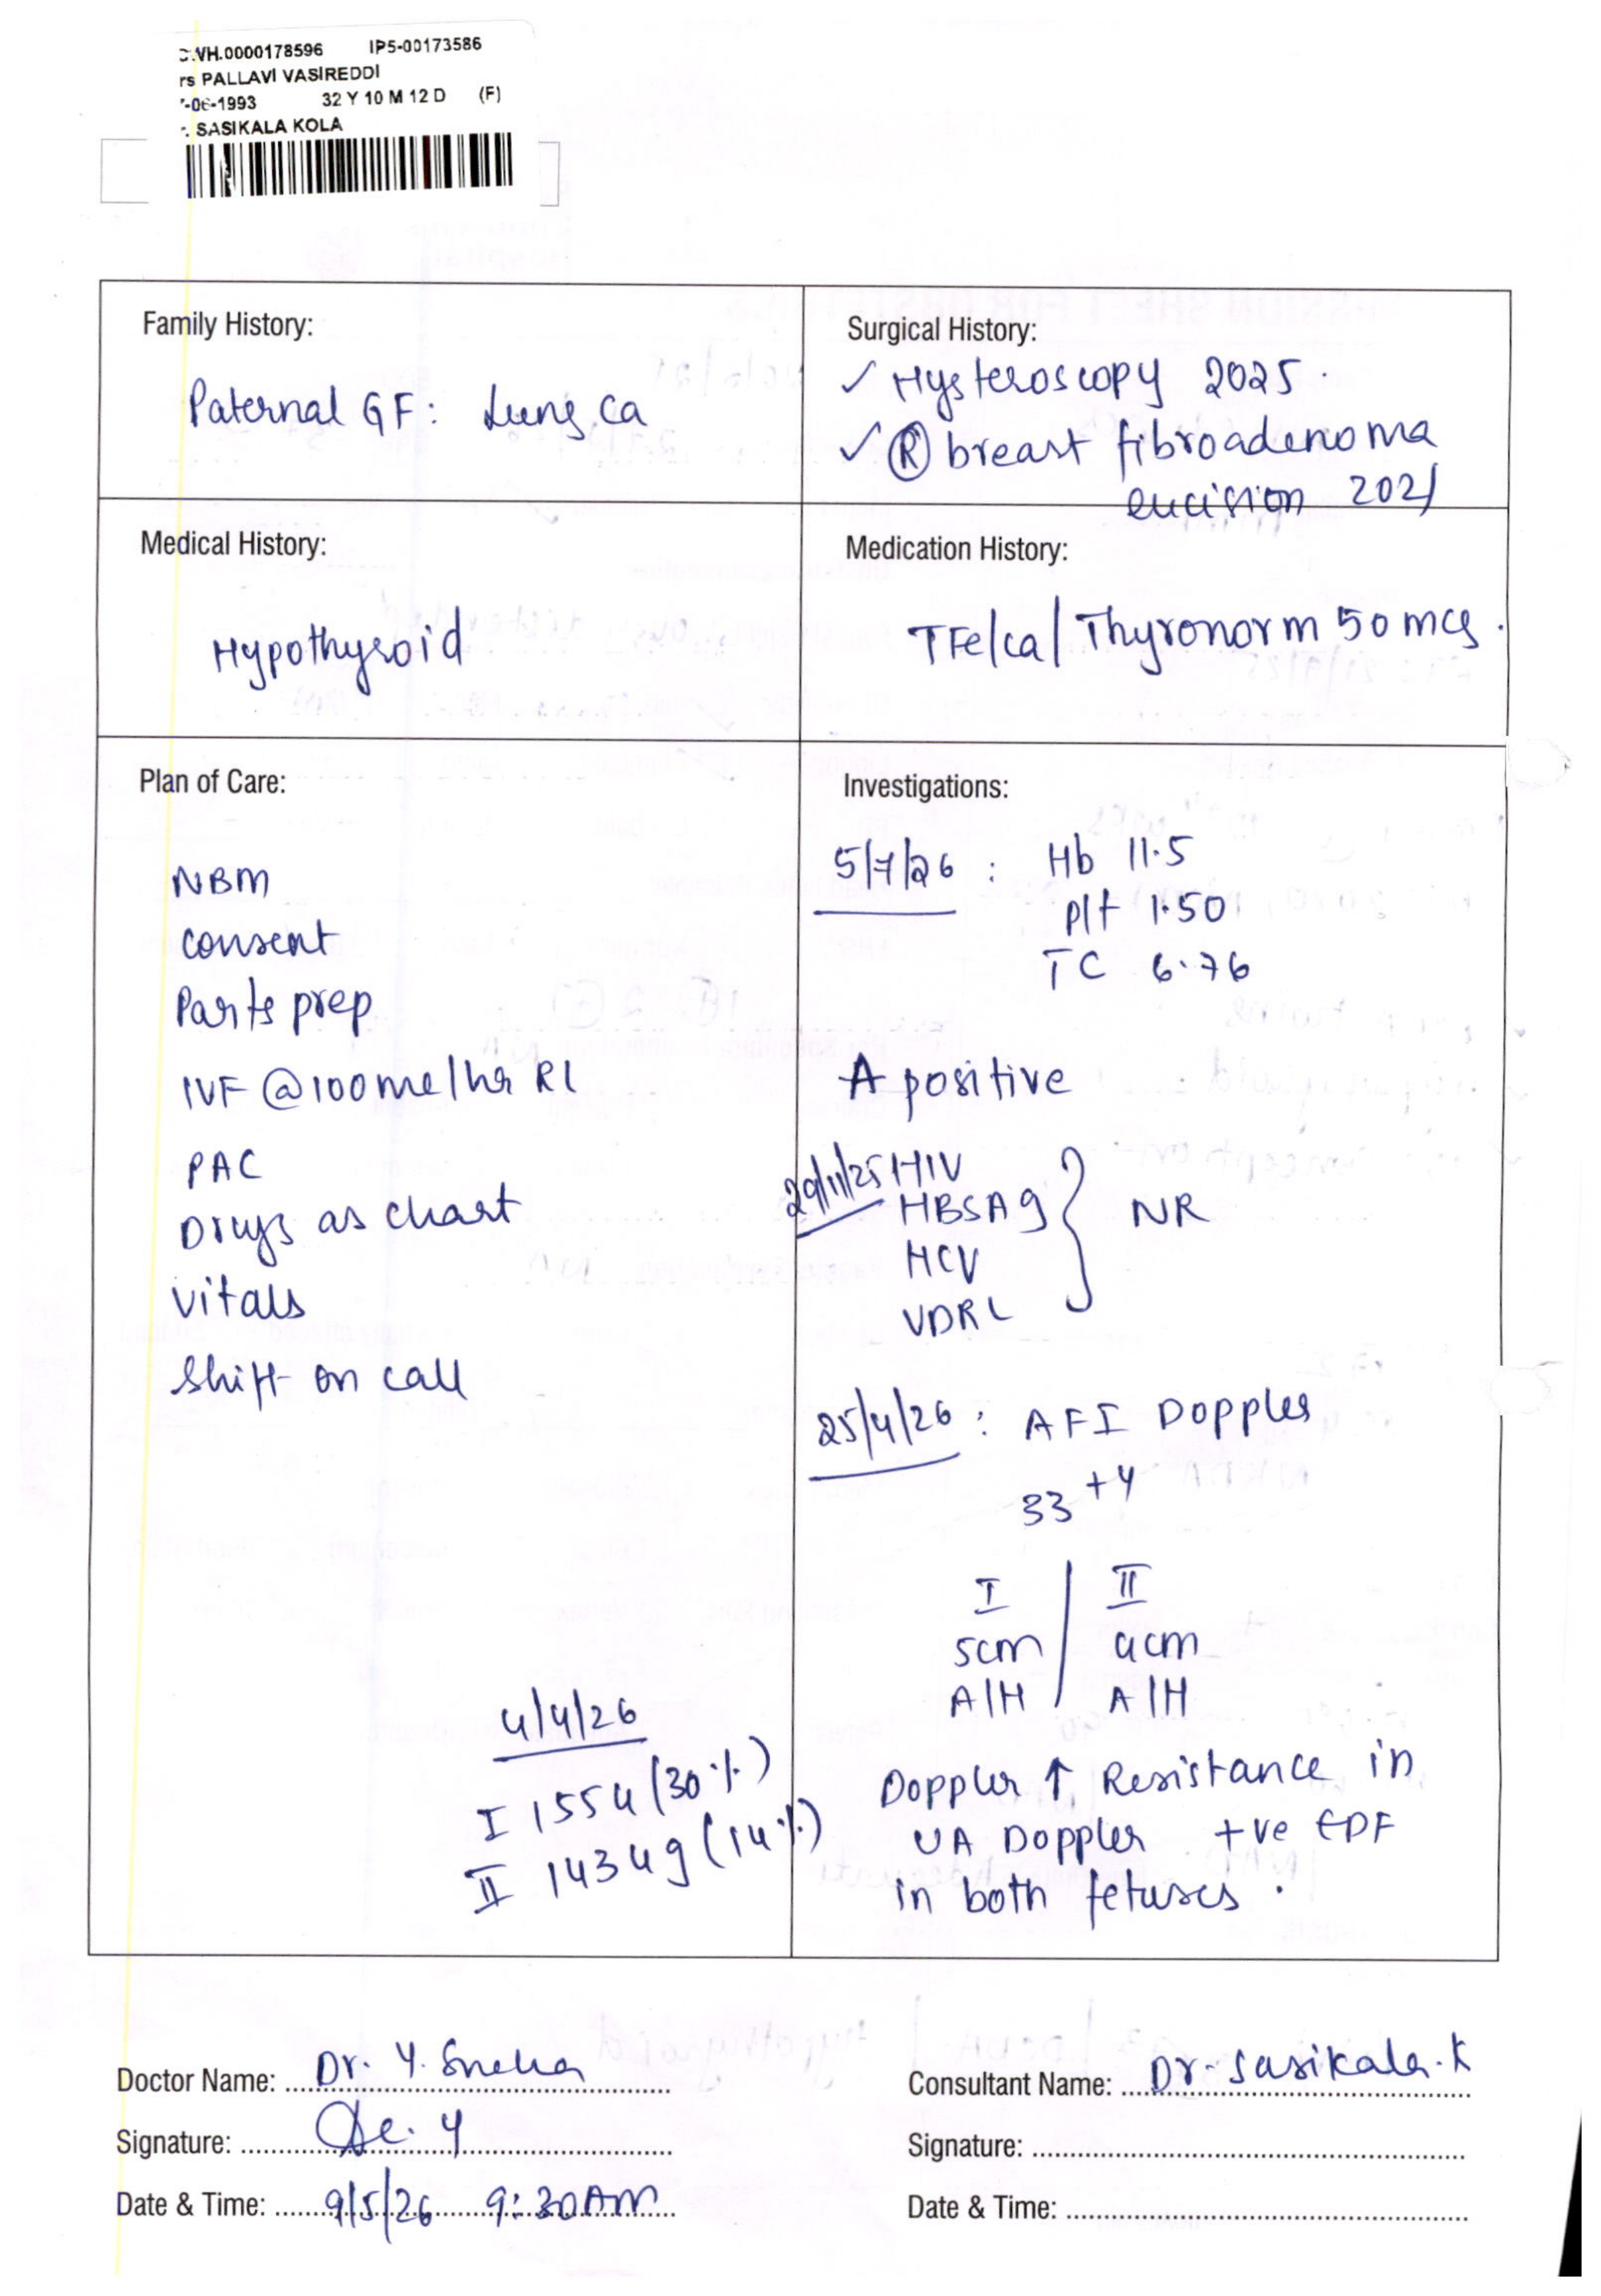 WH.0000178596 IP5-00173586
rs PALLAVI VASIREDDI
-06-1993 32 Y 10 M 12 D (F)
. SASIKALA KOLA
Family History:
Paternal GF: Lung ca
Surgical History:
✓ Hysteroscopy 2025.
✓ Ⓡ breast fibroadenoma
excision 2021
Medical History:
Hypothyroid
Medication History:
TFe/ca/ Thyronorm 50 mcg.
Plan of Care:
NBM
consent
Parts prep
IVF @ 100 ml/hr RL
PAC
Drugs as chart
vitals
shift on call
4/4/26
I 1554 (30%)
II 1434g (14%)
Investigations:
5/7/26 : Hb 11.5
plt 1.50
TC 6.76
A positive
29/11/25 HIV
HBSAg
HCV
VDRL
} NR
25/4/26 : AFI Doppler
33+4
I | II
5cm | 4cm
A/H | A/H
Doppler ↑ Resistance in
UA Doppler +ve EDF
in both fetuses.
Doctor Name: Dr. Y. Sneha
Signature:
Date & Time: 9/5/26 9:30AM
Consultant Name: Dr. Sasikala.K
Signature:
Date & Time: